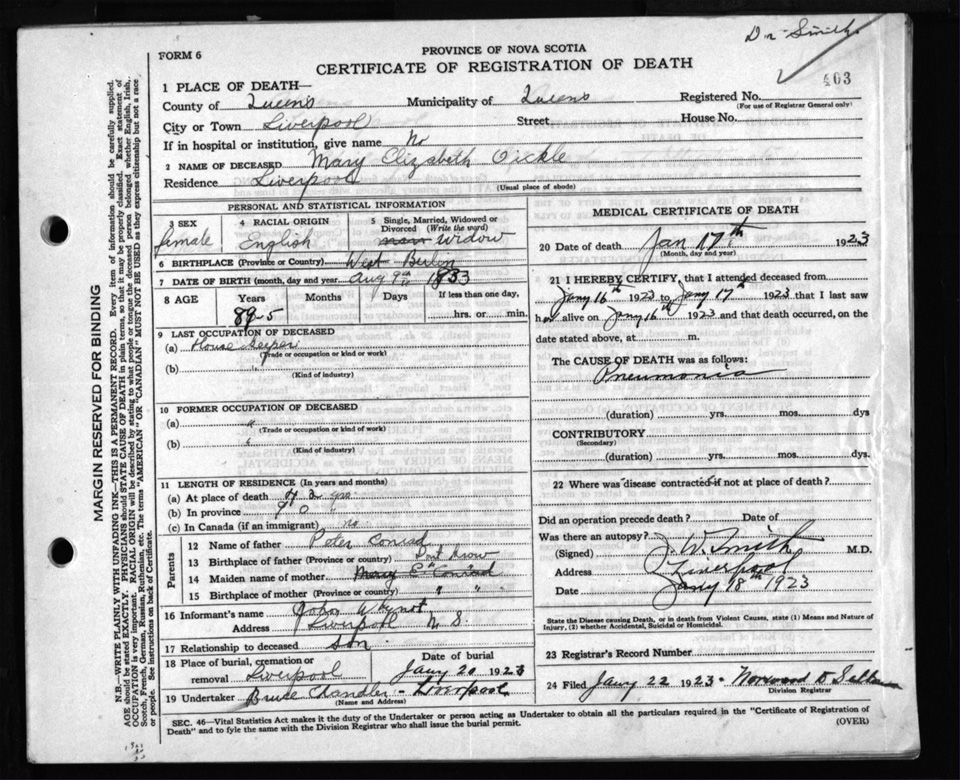 Dr Smith
403
FORM 6
PROVINCE OF NOVA SCOTIA
CERTIFICATE OF REGISTRATION OF DEATH
1 PLACE OF DEATH—
County of Queens Municipality of Queens Registered No.
(For use of Registrar General only)
City or Town Liverpool Street House No.
If in hospital or institution, give name No
2 NAME OF DECEASED Mary Elizabeth Oickle
Residence Liverpool
(Usual place of abode)
PERSONAL AND STATISTICAL INFORMATION
3 SEX female
4 RACIAL ORIGIN English
5 Single, Married, Widowed or Divorced (Write the word) Widow
6 BIRTHPLACE (Province or Country) West Berlin
7 DATE OF BIRTH (month, day and year) Aug 9th 1833
8 AGE Years Months Days If less than one day,
89-5 hrs. or min.
9 LAST OCCUPATION OF DECEASED
(a) House keeper
(Trade or occupation or kind or work)
(b) "
(Kind of industry)
10 FORMER OCCUPATION OF DECEASED
(a) "
(Trade or occupation or kind of work)
(b) "
(Kind of industry)
11 LENGTH OF RESIDENCE (In years and months)
(a) At place of death 42 yrs
(b) In province 90 "
(c) In Canada (if an immigrant) no
Parents
12 Name of father Peter Conrad
13 Birthplace of father (Province or country) Dont Know
14 Maiden name of mother Mary E Conrad
15 Birthplace of mother (Province or country) " "
16 Informant's name Whynot
Address Liverpool N S.
17 Relationship to deceased Son
18 Place of burial, cremation or removal Liverpool
Date of burial Jany 20 1923
19 Undertaker Bruce Chandler - Liverpool
(Name and Address)
MEDICAL CERTIFICATE OF DEATH
20 Date of death Jan 17th 1923
(Month, day and year)
21 I HEREBY CERTIFY, that I attended deceased from
Jany 16th 1923 to Jany 17th 1923 that I last saw
her alive on Jany 16th 1923 and that death occurred, on the
date stated above, at m.
The CAUSE OF DEATH was as follows:
Pneumonia
(duration) yrs. mos. dys
CONTRIBUTORY
(Secondary)
(duration) yrs. mos. dys.
22 Where was disease contracted if not at place of death?
Did an operation precede death? Date of
Was there an autopsy?
(Signed) J. W. Smith M.D.
Address Liverpool
Date Jany 18th 1923
State the Disease causing Death, or in death from Violent Causes, state (1) Means and Nature of
Injury, (2) whether Accidental, Suicidal or Homicidal.
23 Registrar's Record Number
24 Filed Jany 22 1923 - Norwood
Division Registrar
SEC. 46—Vital Statistics Act makes it the duty of the Undertaker or person acting as Undertaker to obtain all the particulars required in the "Certificate of Registration of
Death" and to fyle the same with the Division Registrar who shall issue the burial permit.
(OVER)
MARGIN RESERVED FOR BINDING
N.B.—WRITE PLAINLY WITH UNFADING INK—THIS IS A PERMANENT RECORD. Every item of information should be carefully supplied.
AGE should be stated EXACTLY. PHYSICIANS should STATE CAUSE OF DEATH in plain terms, so that it may be properly classified. Exact statement of
OCCUPATION is very important. RACIAL ORIGIN will be described by stating to what people or tongue the deceased person belonged whether English, Irish,
Scotch, French, German, Russian, Ruthenian, etc. The terms "AMERICAN" OR "CANADIAN" MUST NOT BE USED as they express citizenship but not a race
or people. See instructions on back of Certificate.